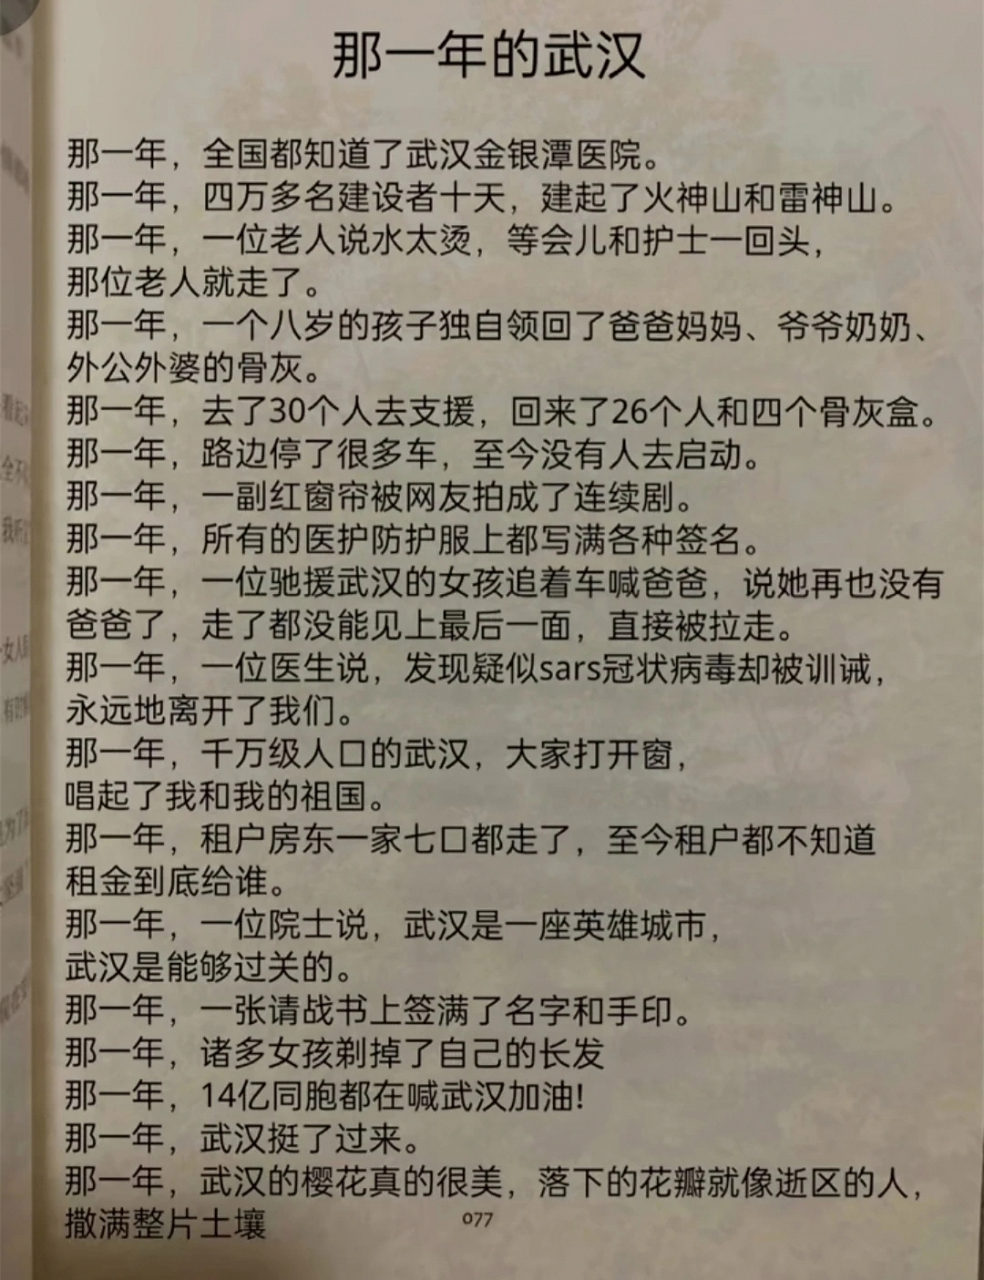 那一年的武汉
那一年，全国都知道了武汉金银潭医院。
那一年，四万多名建设者十天，建起了火神山和雷神山。
那一年，一位老人说水太烫，等会儿和护士一回头，
那位老人就走了。
那一年，一个八岁的孩子独自领回了爸爸妈妈、爷爷奶奶、
外公外婆的骨灰。
那一年，去了30个人去支援，回来了26个人和四个骨灰盒。
那一年，路边停了很多车，至今没有人去启动。
那一年，一副红窗帘被网友拍成了连续剧。
那一年，所有的医护防护服上都写满各种签名。
那一年，一位驰援武汉的女孩追着车喊爸爸，说她再也没有
爸爸了，走了都没能见上最后一面，直接被拉走。
那一年，一位医生说，发现疑似sars冠状病毒却被训诫，
永远地离开了我们。
那一年，千万级人口的武汉，大家打开窗，
唱起了我和我的祖国。
那一年，租户房东一家七口都走了，至今租户都不知道
租金到底给谁。
那一年，一位院士说，武汉是一座英雄城市，
武汉是能够过关的。
那一年，一张请战书上签满了名字和手印。
那一年，诸多女孩剃掉了自己的长发
那一年，14亿同胞都在喊武汉加油!
那一年，武汉挺了过来。
那一年，武汉的樱花真的很美，落下的花瓣就像逝区的人，
撒满整片土壤
077